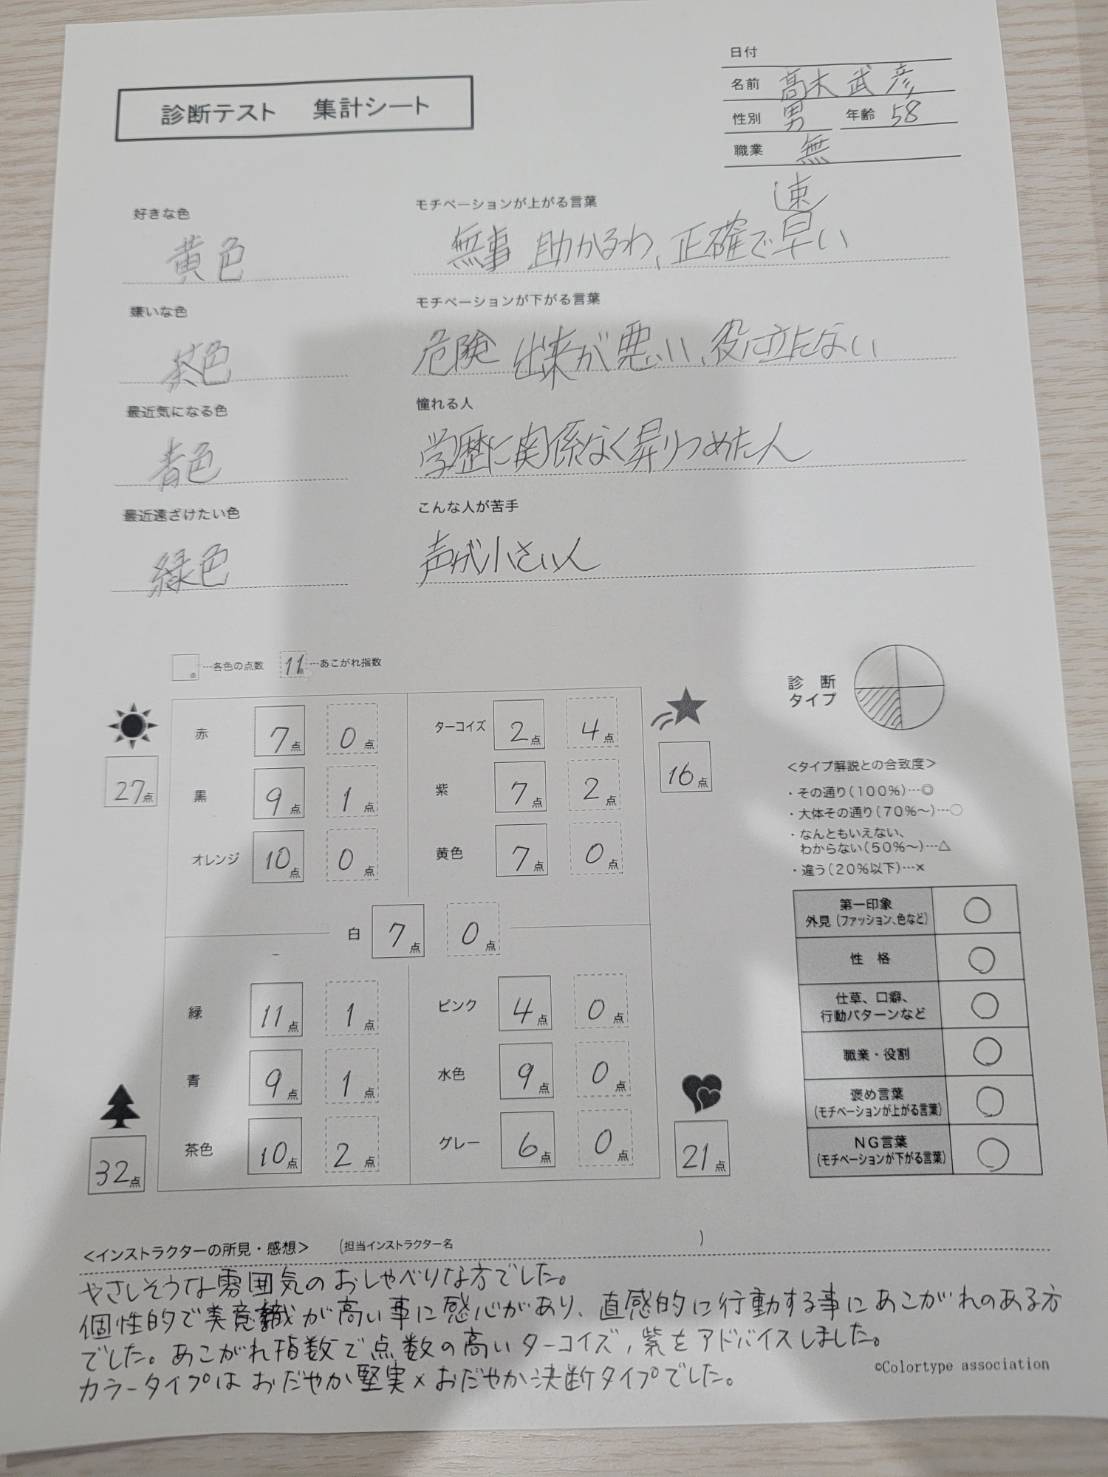 日付
診断テスト 集計シート
名前 高木 武彦
性別 男 年齢 58
職業 無
好きな色
黄色
モチベーションが上がる言葉
速
無事 助かるわ、正確で早い
嫌いな色
茶色
モチベーションが下がる言葉
危険 出来が悪い、役に立たない
最近気になる色
青色
憧れる人
学歴に関係なく昇りつめた人
最近遠ざけたい色
緑色
こんな人が苦手
声が小さい人
点…各色の点数 11点…あこがれ指数
診断タイプ
27点
赤 7点 0点
黒 9点 1点
オレンジ 10点 0点
ターコイズ 2点 4点
紫 7点 2点
黄色 7点 0点
16点
白 7点 0点
緑 11点 1点
青 9点 1点
茶色 10点 2点
32点
ピンク 4点 0点
水色 9点 0点
グレー 6点 0点
21点
<タイプ解説との合致度>
・その通り(100%)…◎
・大体その通り(70%〜)…○
・なんともいえない、
わからない(50%〜)…△
・違う(20%以下)…×
第一印象
外見(ファッション、色など) ○
性格 ○
仕草、口癖、
行動パターンなど ○
職業・役割 ○
褒め言葉
(モチベーションが上がる言葉) ○
NG言葉
(モチベーションが下がる言葉) ○
<インストラクターの所見・感想> (担当インストラクター名 )
やさしそうな雰囲気のおしゃべりな方でした。
個性的で美意識が高い事に感心があり、直感的に行動する事にあこがれのある方
でした。あこがれ指数で点数の高いターコイズ,紫をアドバイスしました。
カラータイプはおだやか堅実×おだやか決断タイプでした。
©Colortype association